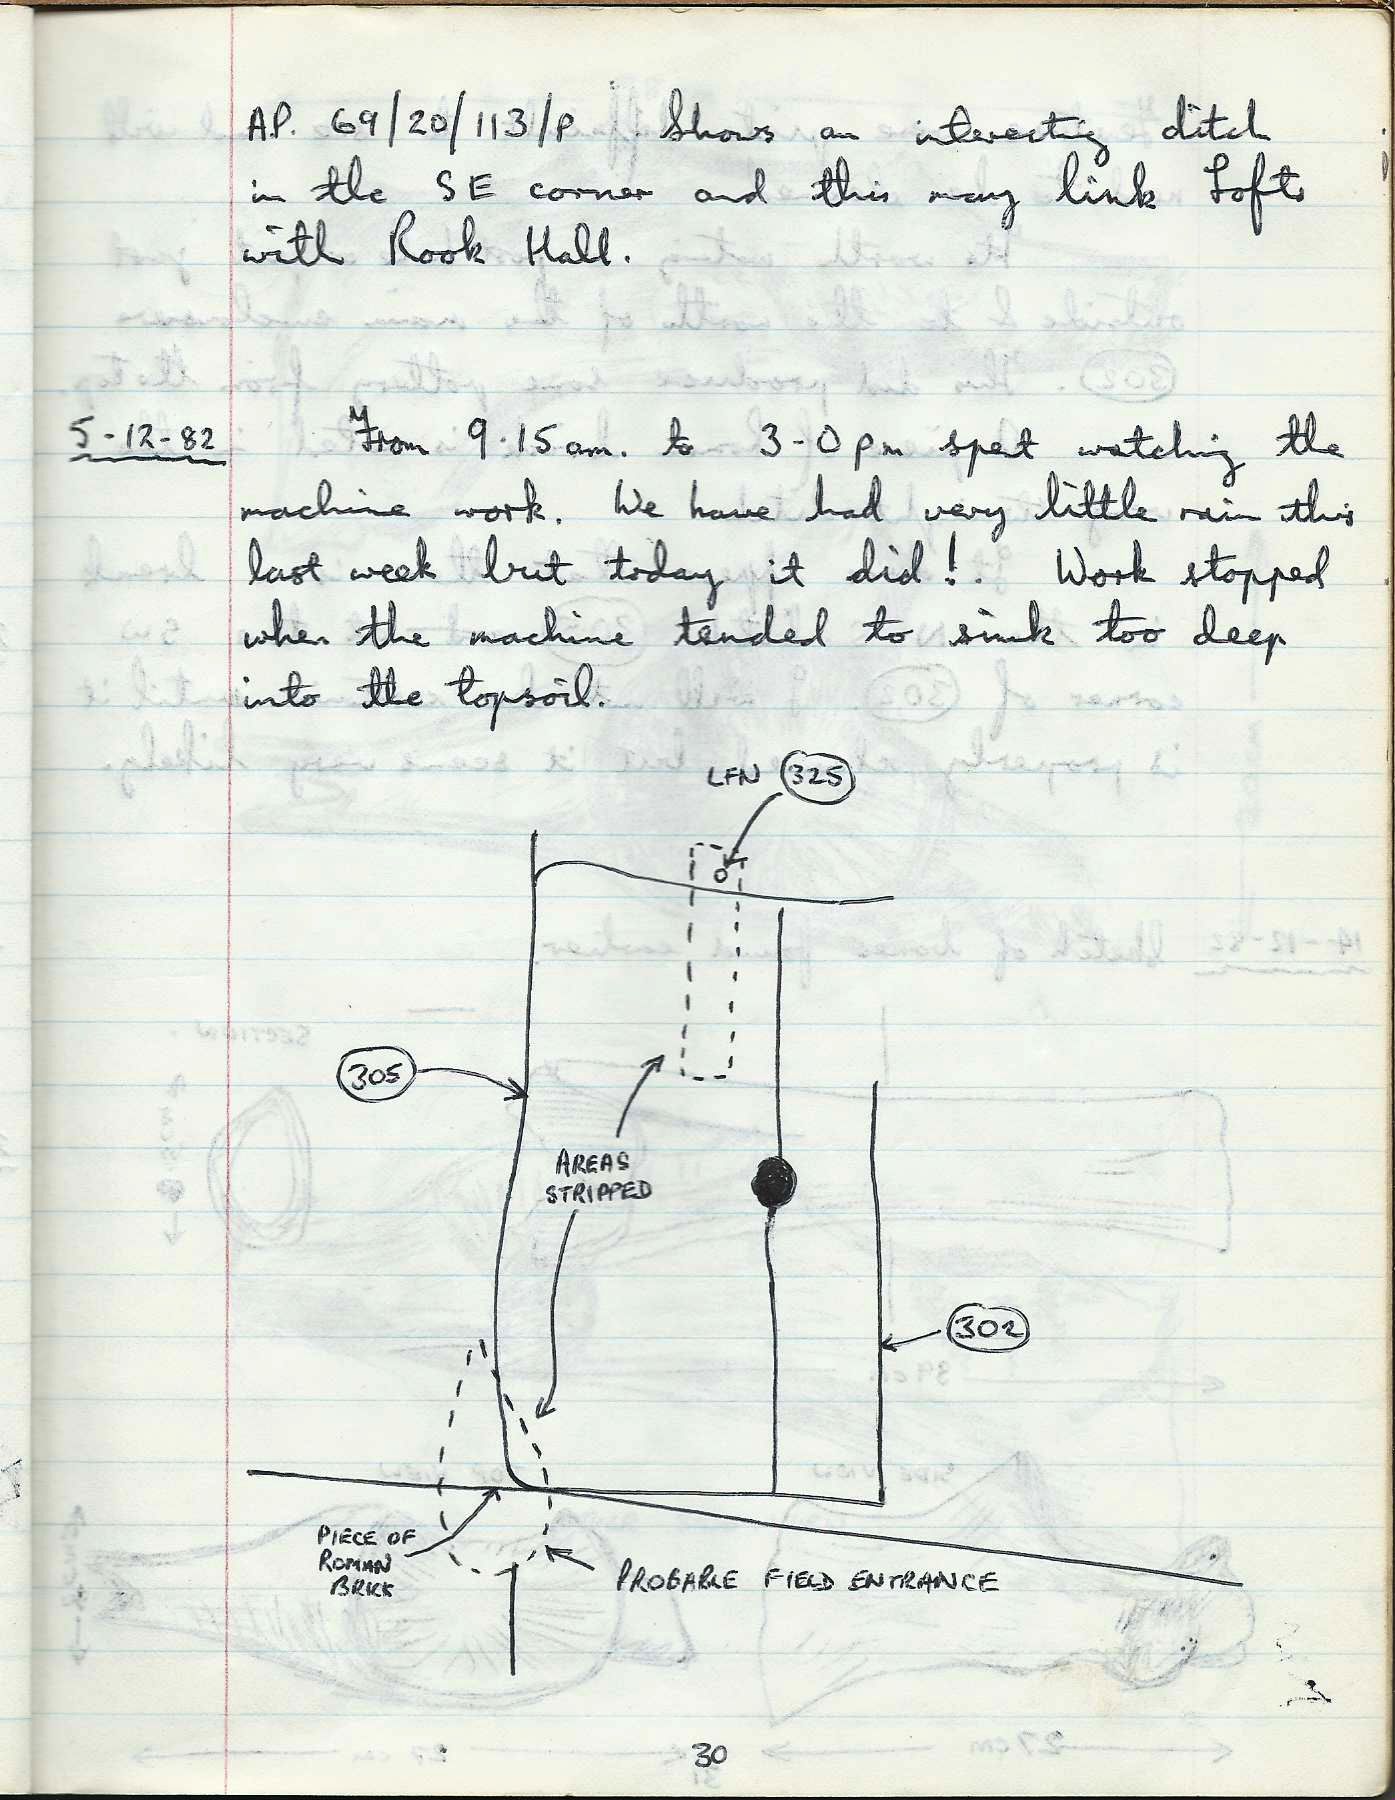 A.P. 69/20/113/P. Shows an interesting ditch
in the SE corner and this may link Lofts
with Rook Hall.
5-12-82 From 9.15 am. to 3-0 pm spent watching the
machine work. We have had very little rain this
last week but today it did!. Work stopped
when the machine tended to sink too deep
into the topsoil.
LFN 325
305
AREAS
STRIPPED
302
PIECE OF
ROMAN
BRICK
PROBABLE FIELD ENTRANCE
30